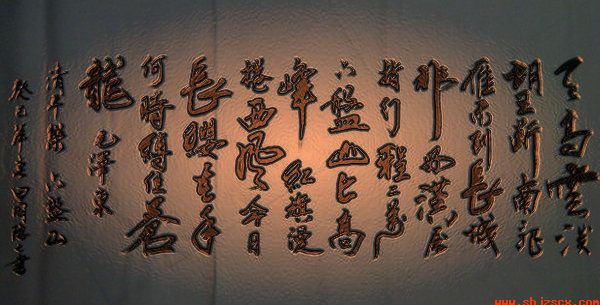 天高雲淡
望斷南飛
雁不到長城
非好漢屈
指行程二萬
六盤山上高
峰紅旗漫
捲西風今日
長纓在手
何時縛住蒼
龍 毛澤東
清平樂六盤山
癸巳年
www.shjzscx.com